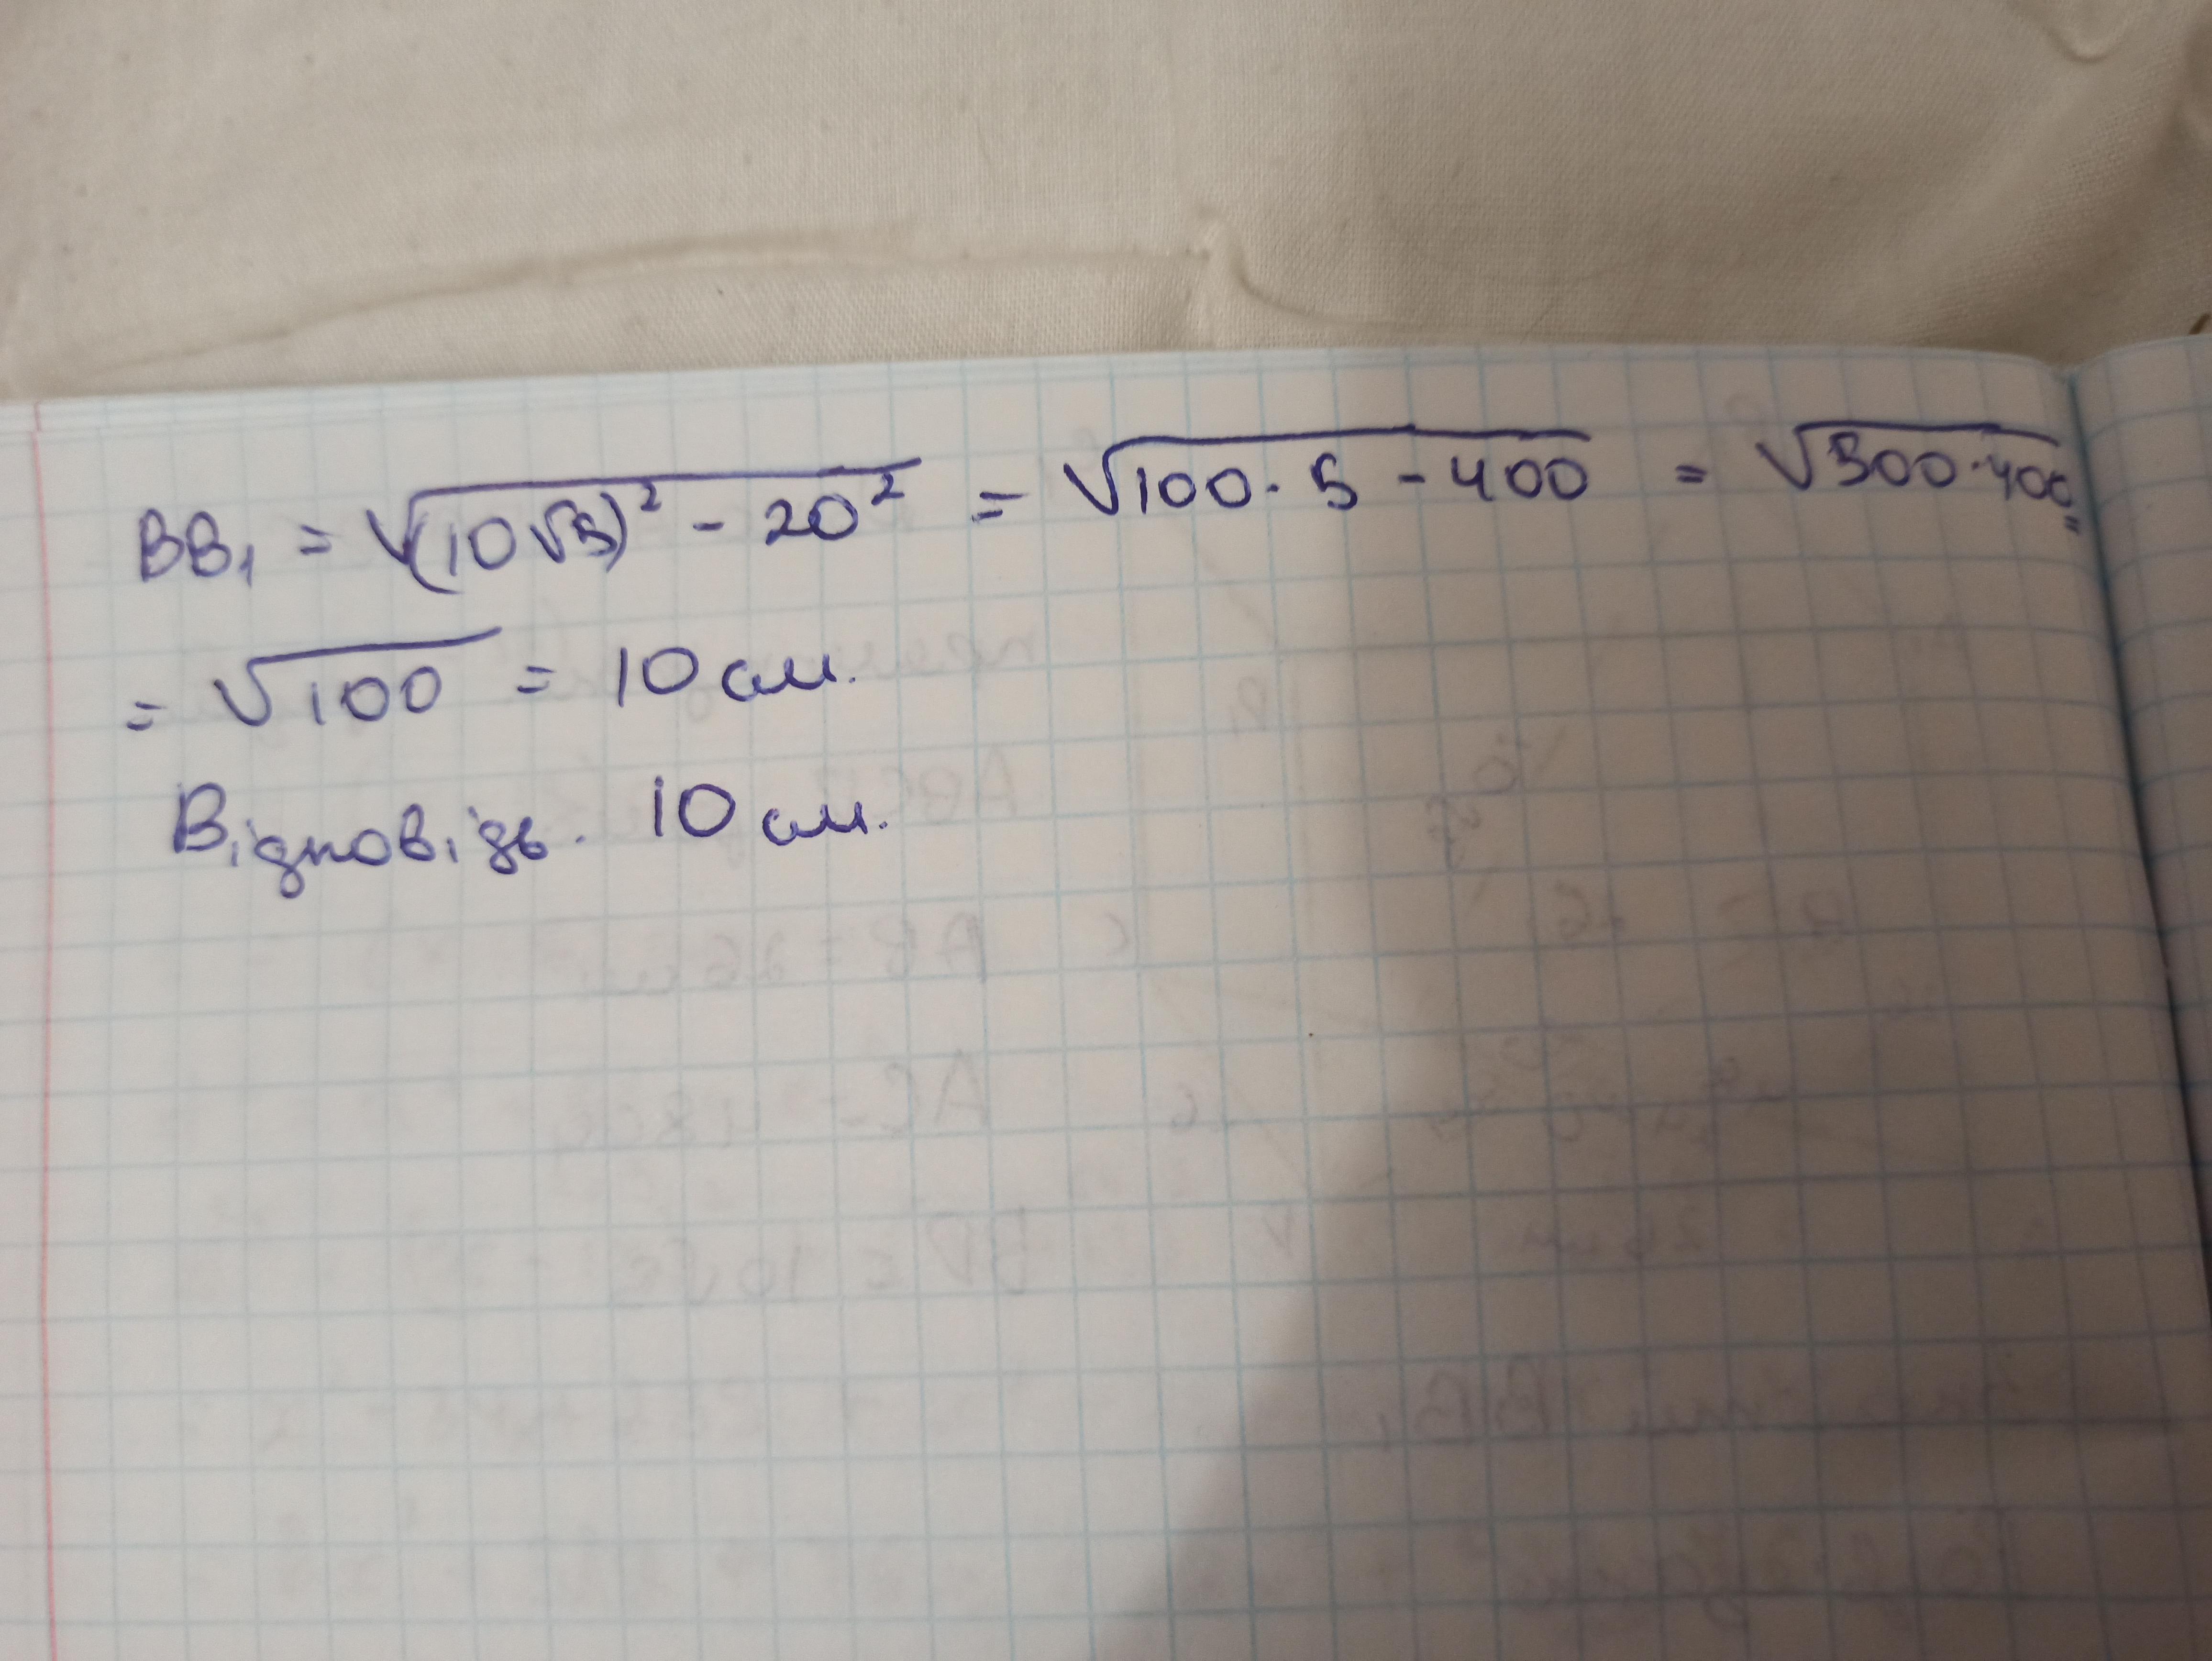 BB₁ = √((10√5)² - 20²) = √(100·5 - 400) = √(500·400) =
= √100 = 10 см.
Відповідь. 10 см.